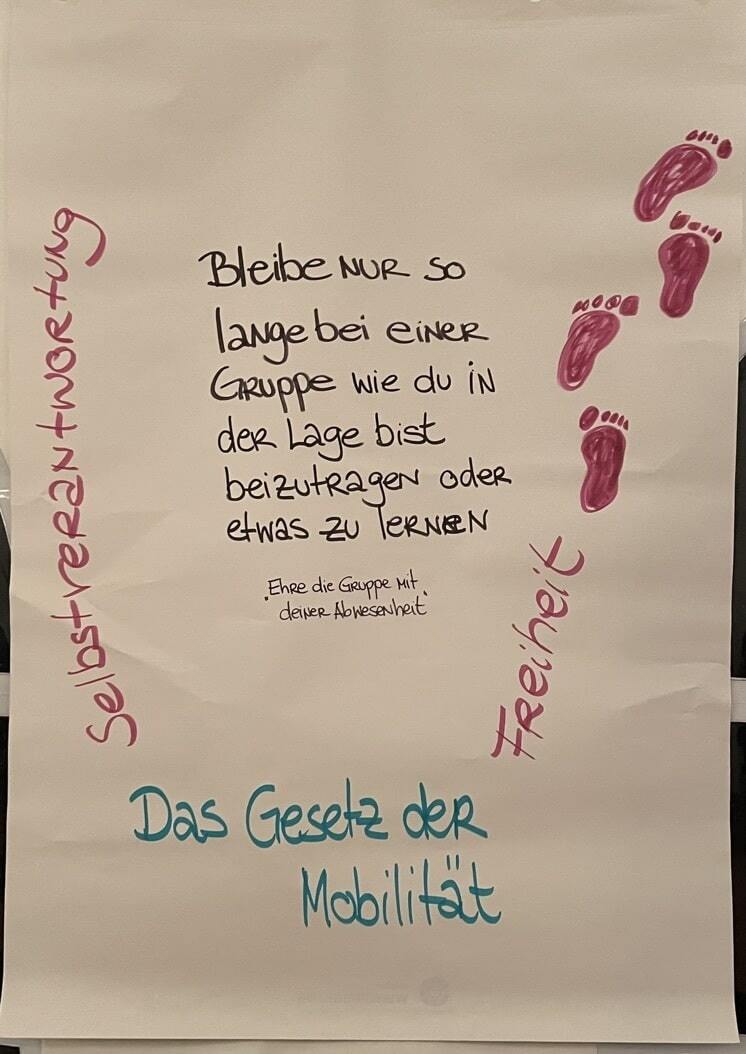 Selbstverantwortung
Bleibe nur so
lange bei einer
Gruppe wie du in
der Lage bist
beizutragen oder
etwas zu lernen
"Ehre die Gruppe mit
deiner Abwesenheit"
Freiheit
Das Gesetz der
Mobilität